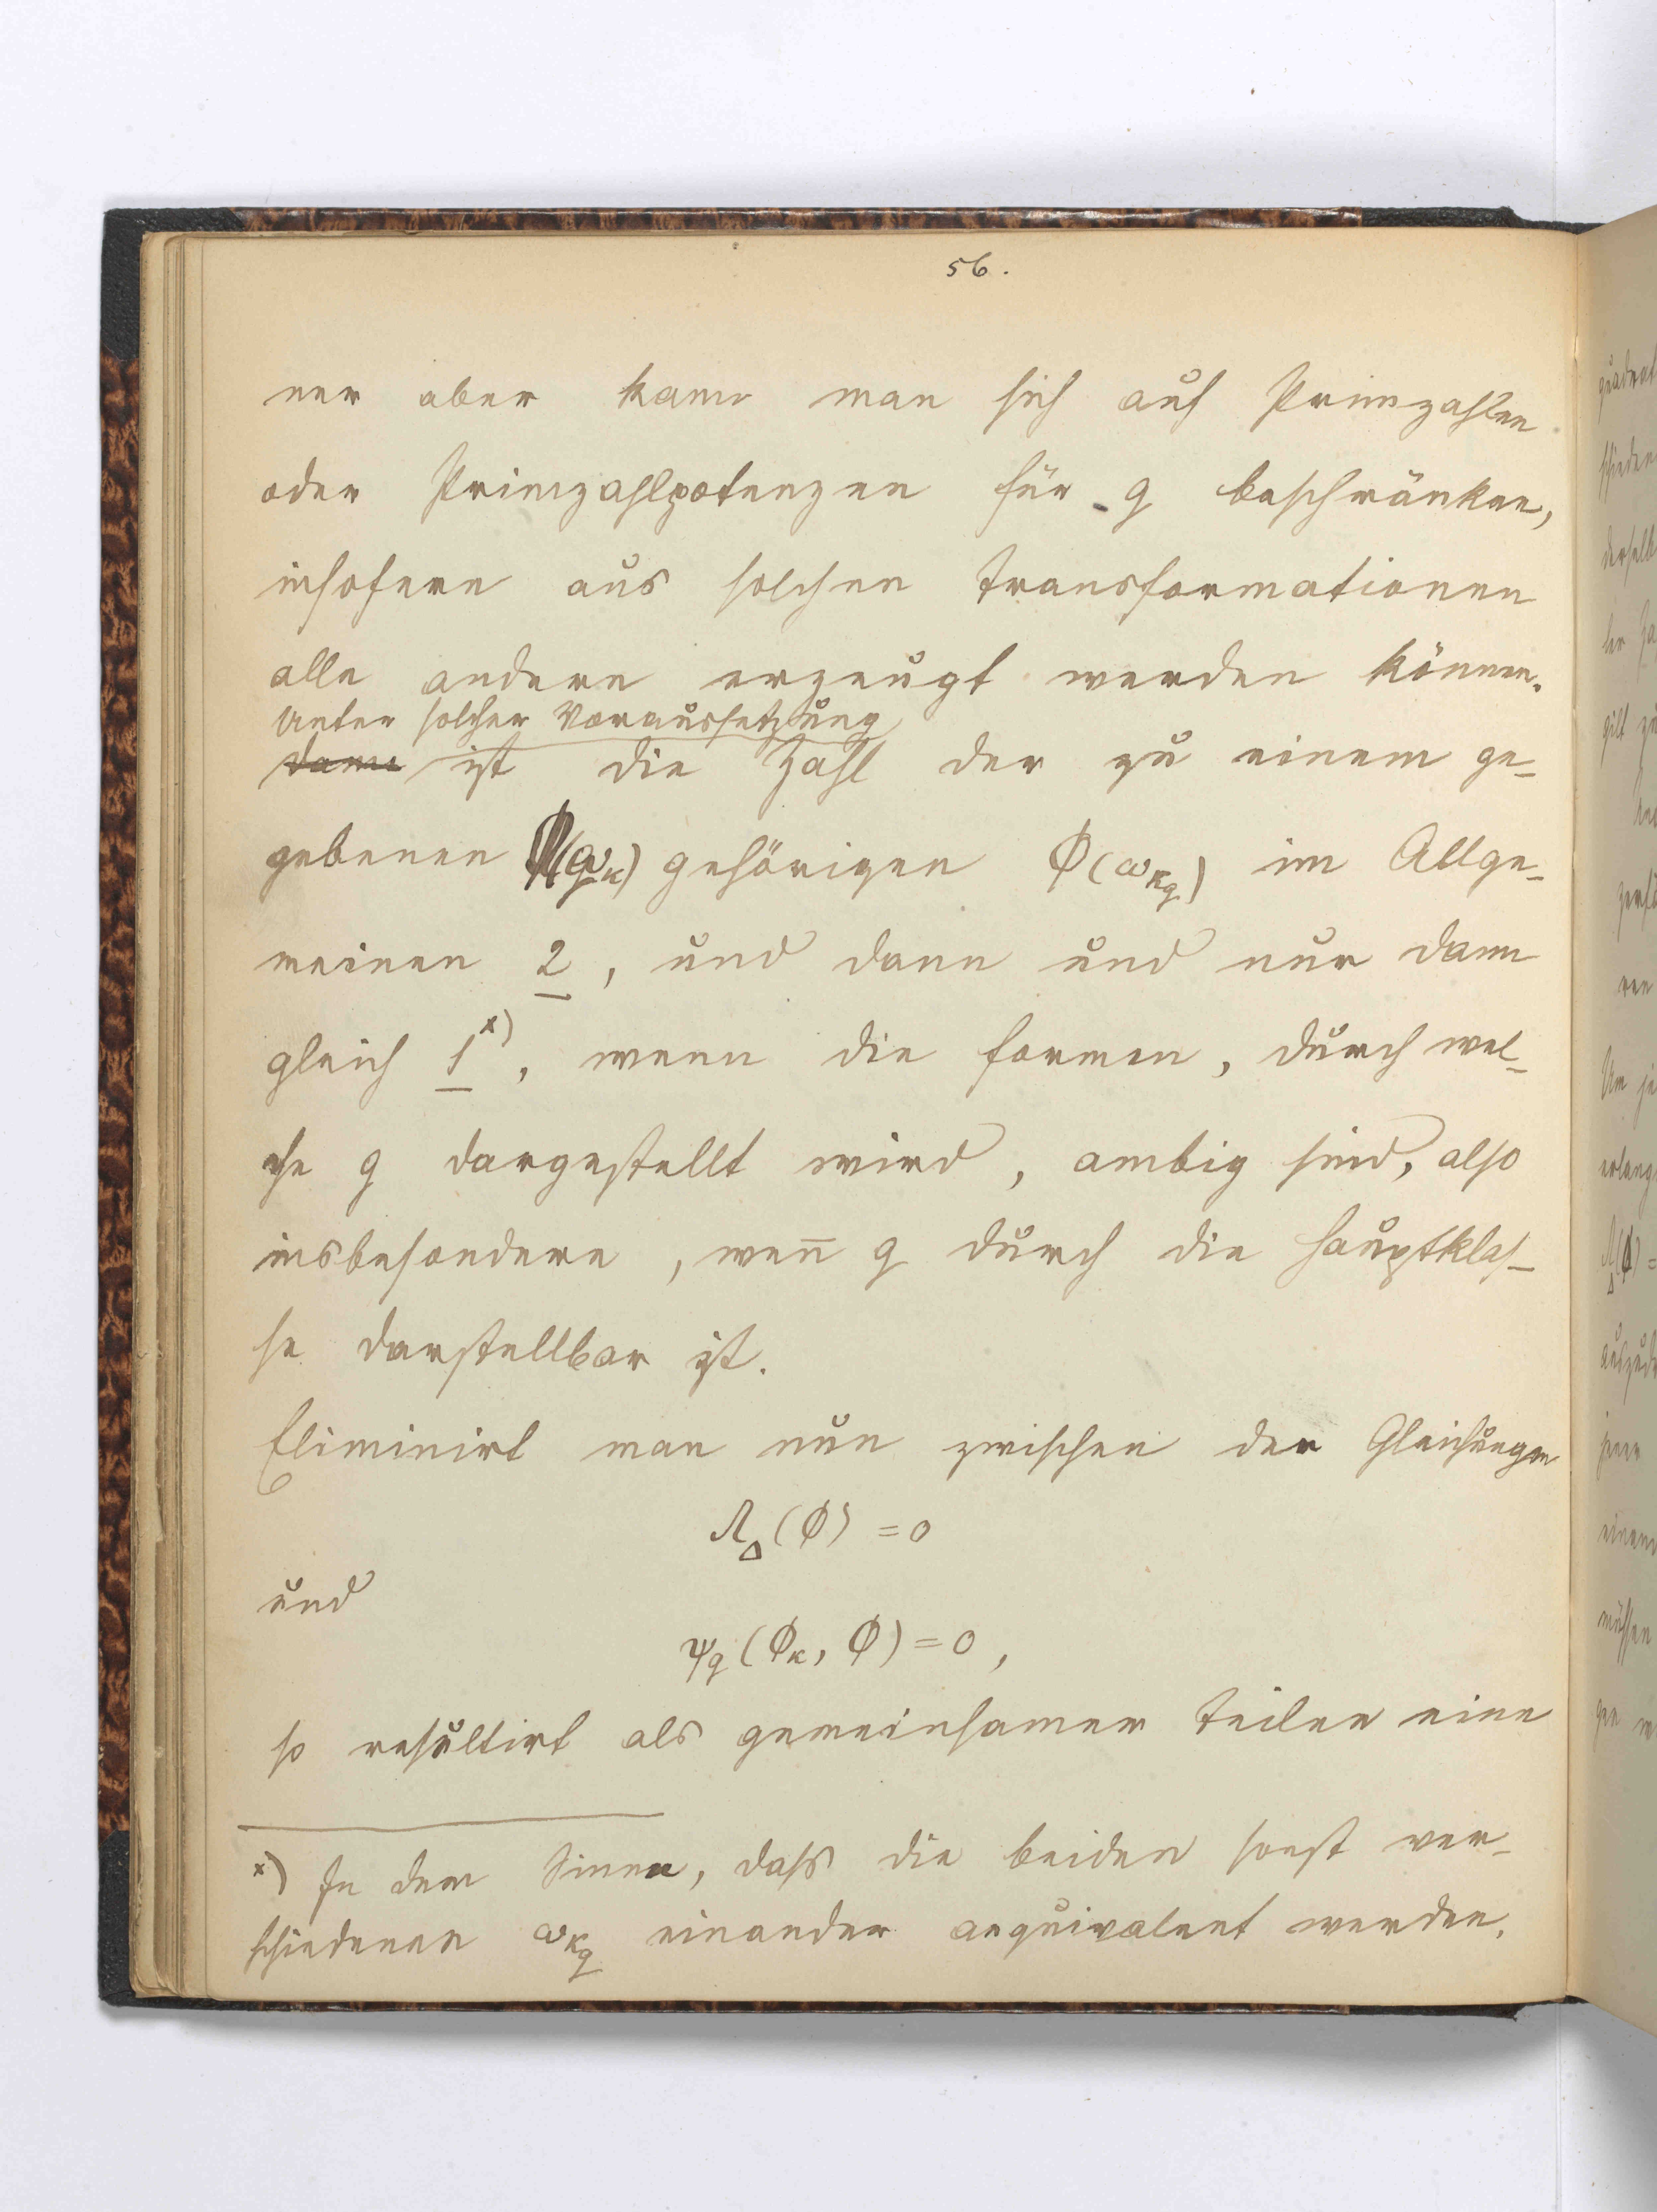 56.
ner aber kann man sich auf Primzahlen
oder Primzahlpotenzen für q beschränken,
insofern aus solchen Transformationen
alle andern erzeugt werden können.
Unter solcher Voraussetzung
dann ist die Zahl der zu einem ge-
gebenen Φ(ω_κ) gehörigen Φ(ω_{κ_q}) im Allge-
meinen 2, und dann und nur dann
gleich 1ˣ⁾, wenn die Formen, durch wel-
che q dargestellt wird, ambig sind, also
insbesondere, wen̄ q durch die Hauptklas-
se darstellbar ist.
Eliminirt man nun zwischen den Gleichungen
Λ_Δ(Φ) = 0
und
ψ_q(Φ_κ, Φ) = 0,
so resultirt als gemeinsamer Teiler eine
ˣ⁾ In dem Sinne, dass die beiden sonst ver-
schiedenen ω_{κ_q} einander aequivalent werden.